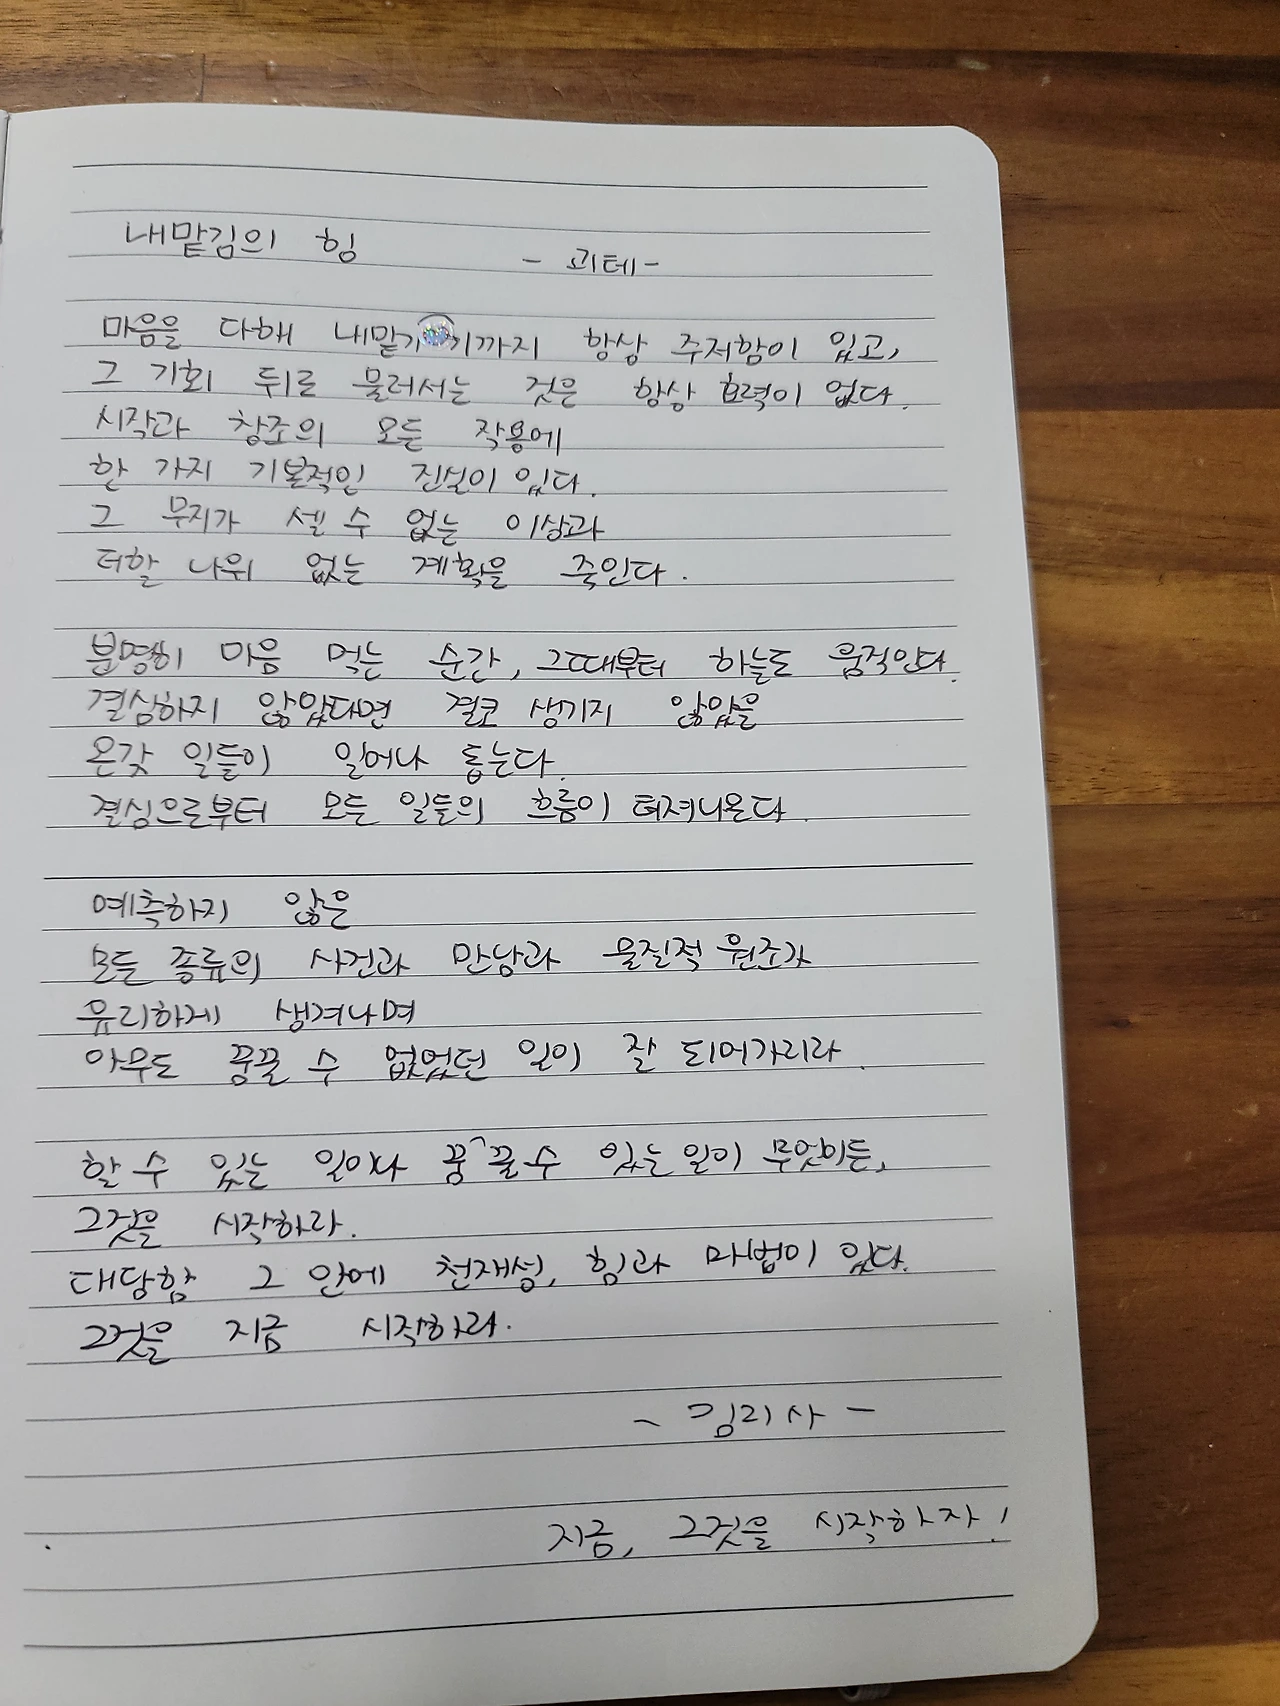 내맡김의 힘 - 괴테 -
마음을 다해 내맡기기까지 항상 주저함이 있고,
그 기회 뒤로 물러서는 것은 항상 효력이 없다.
시작과 창조의 모든 작용에
한 가지 기본적인 진실이 있다.
그 무지가 셀 수 없는 이상과
더할 나위 없는 계획을 죽인다.
분명히 마음 먹는 순간, 그때부터 하늘도 움직인다.
결심하지 않았다면 결코 생기지 않았을
온갖 일들이 일어나 돕는다.
결심으로부터 모든 일들의 흐름이 터져나온다.
예측하지 않은
모든 종류의 사건과 만남과 물질적 원조가
유리하게 생겨나며
아무도 꿈꿀 수 없었던 일이 잘 되어가리라.
할 수 있는 일이나 꿈 꿀 수 있는 일이 무엇이든,
그것을 시작하라.
대담함 그 안에 천재성, 힘과 마법이 있다.
그것을 지금 시작하라.
- 김리사 -
지금, 그것을 시작하자!